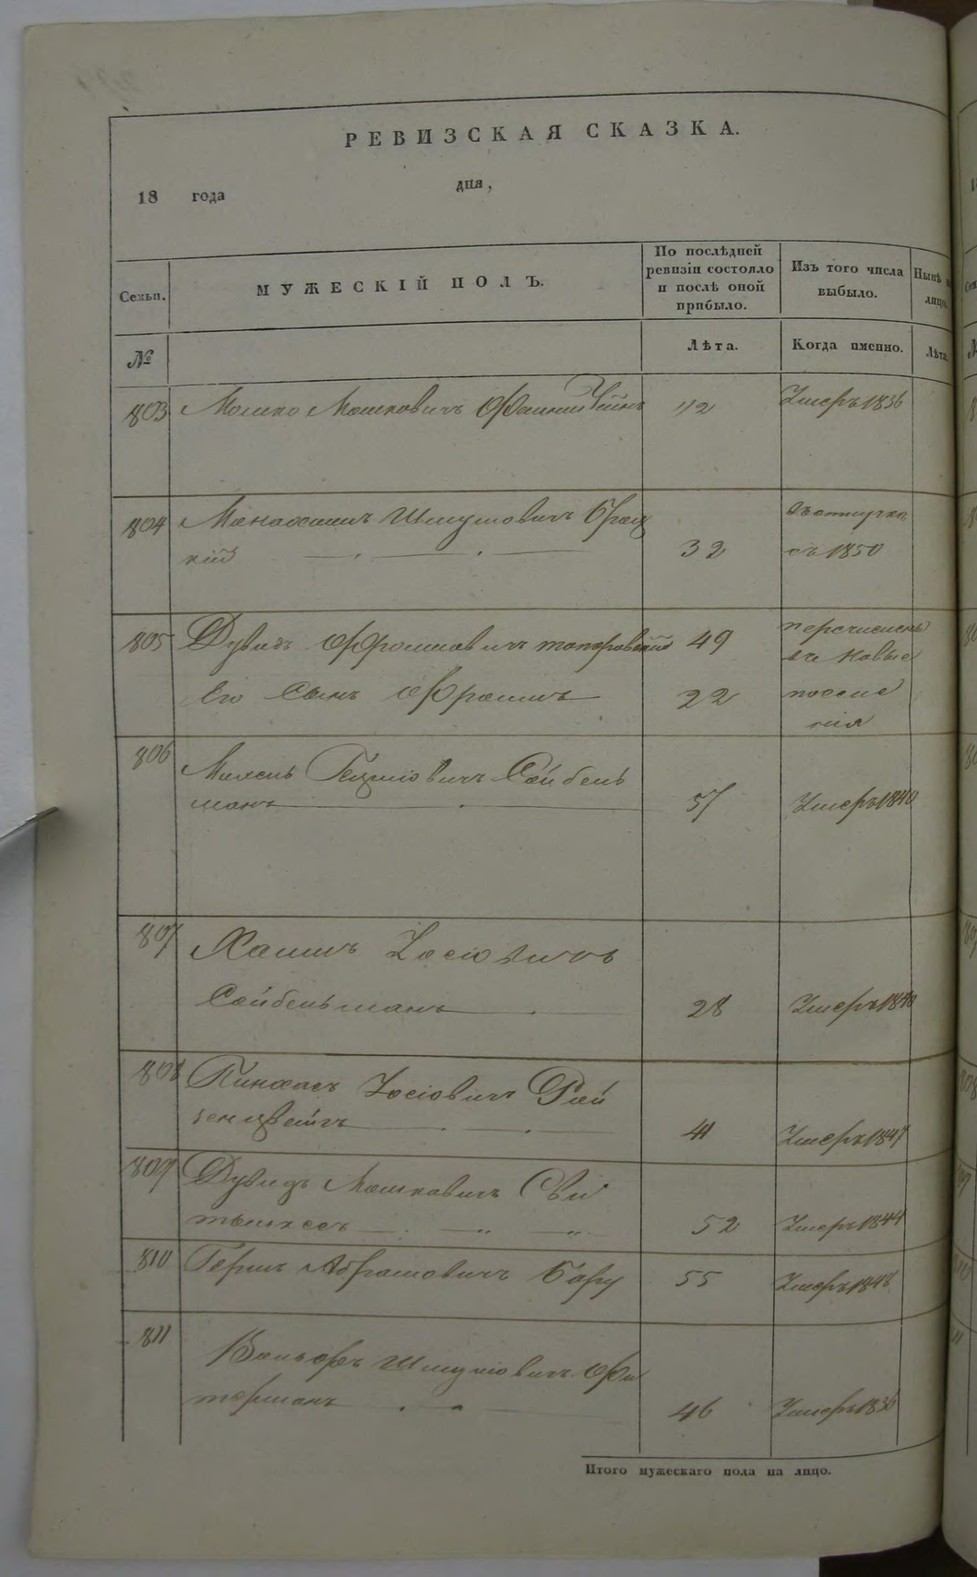 РЕВИЗСКАЯ СКАЗКА.
18 года дня,
Семьи. МУЖЕСКІЙ ПОЛЪ. По послѣдней ревизіи состояло и послѣ оной прибыло. Изъ того числа выбыло. Нынѣ
лицо.
№ Лѣта. Когда именно. Лѣта.
803 Мошко Мошковичъ 42 Умеръ 1836
804 Манашемъ Шмулiовичъ Брац
кій 32 въ отлучкѣ
съ 1850
805 Дувидъ Фроимовичъ Топоровскій 49 перечисленъ
въ новые
Его Сынъ Фроимъ 22 поселе
нія
806 Михель Гецшіовичъ Сойбель
манъ 57 Умеръ 1840
807 Хаимъ Іосіовичъ
Сойбельманъ 28 Умеръ 1840
808 Пинхасъ Іосіовичъ Рой
зенцвейгъ 41 Умеръ 1847
809 Дувидъ Мошковичъ 52 Умеръ 1844
810 Гершъ Абрамовичъ Бару 55 Умеръ 1848
811 Вольфъ Шмуліовичъ Фи
терманъ 46 Умеръ 1836
Итого мужескаго пола на лицо.